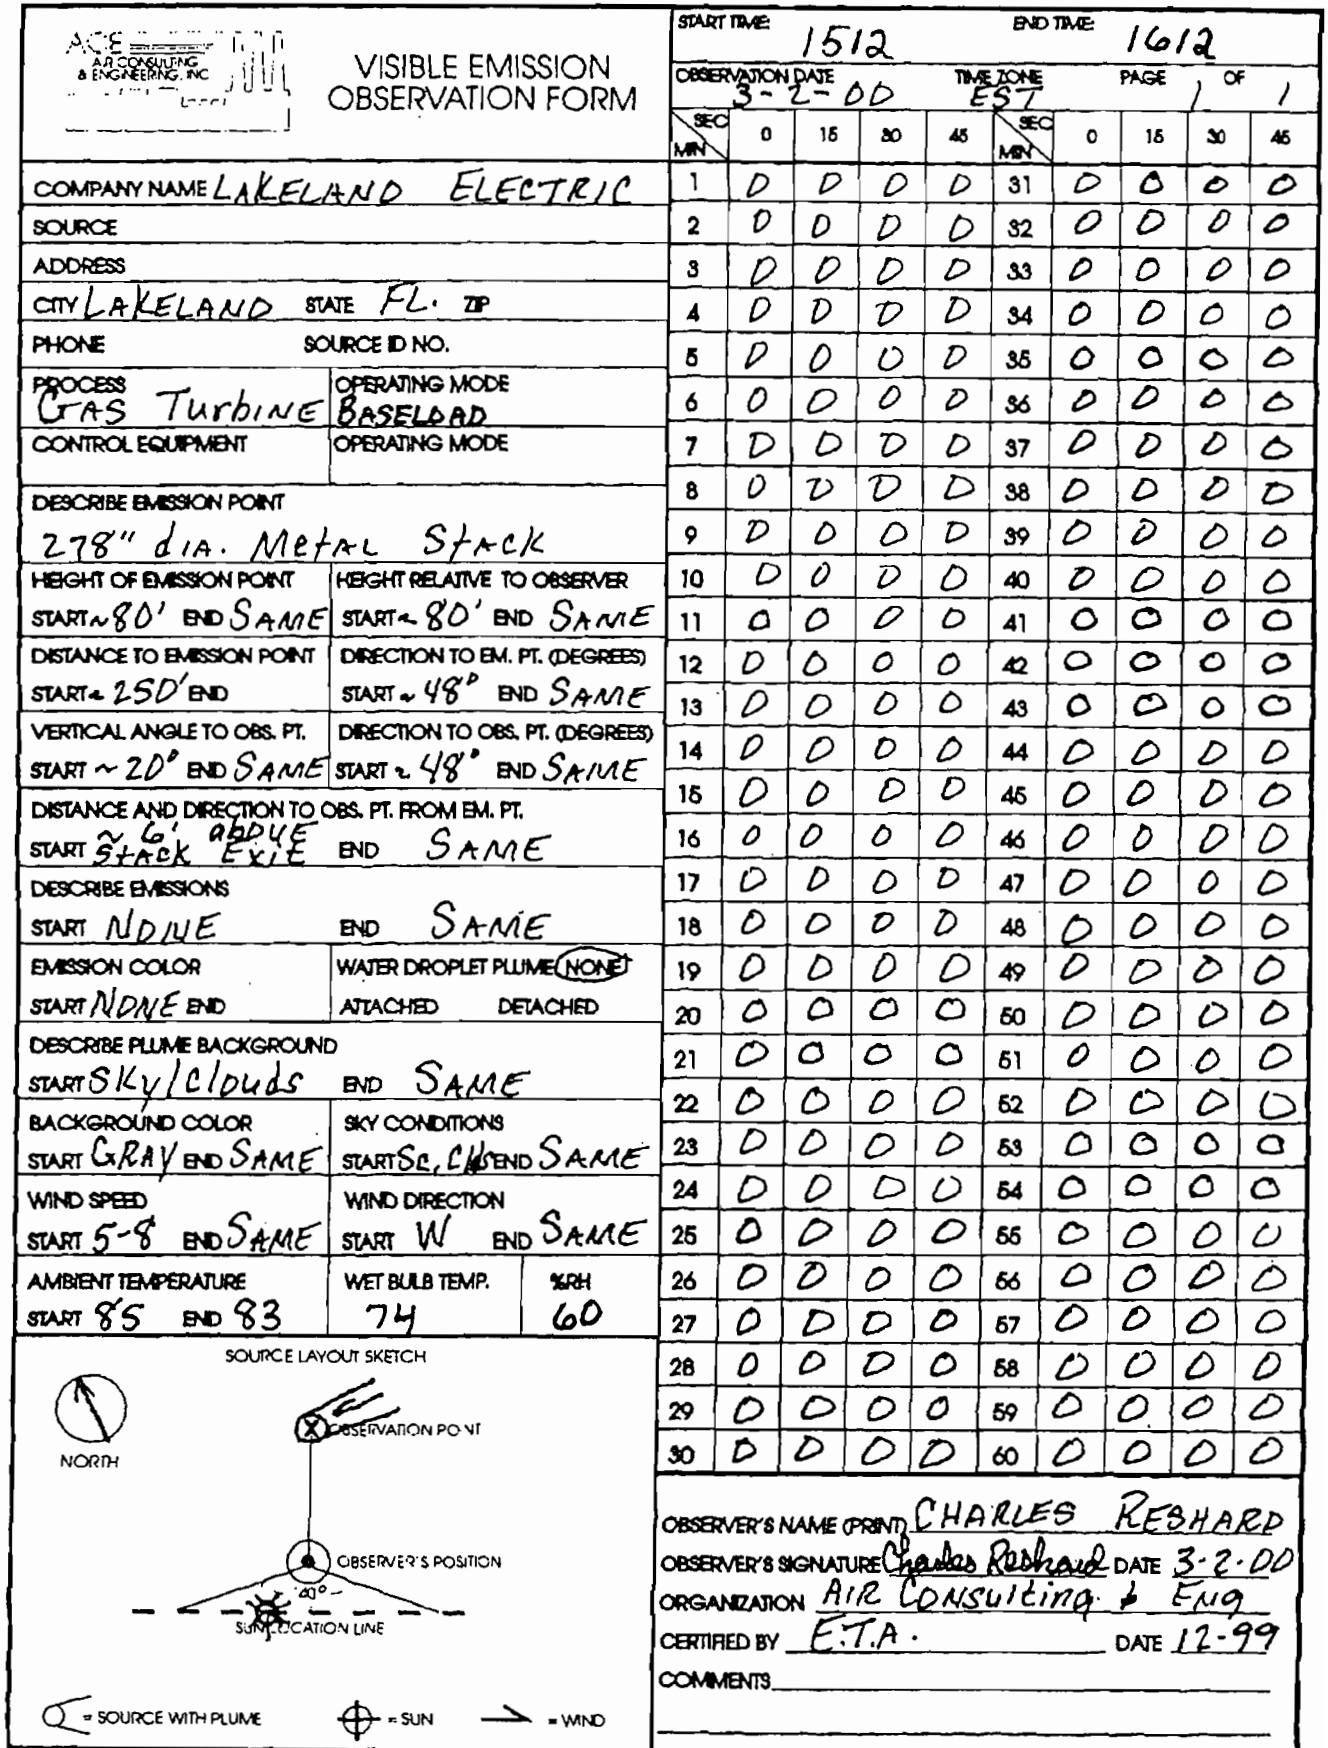 ACE
AIR CONSULTING
& ENGINEERING, INC
VISIBLE EMISSION
OBSERVATION FORM
COMPANY NAME LAKELAND ELECTRIC
SOURCE
ADDRESS
CITY LAKELAND STATE FL. ZIP
PHONE SOURCE ID NO.
PROCESS OPERATING MODE
GAS TurbINE BASELOAD
CONTROL EQUIPMENT OPERATING MODE
DESCRIBE EMISSION POINT
278" dIA. MetAL StAck
HEIGHT OF EMISSION POINT HEIGHT RELATIVE TO OBSERVER
START ~80' END SAME START ~ 80' END SAME
DISTANCE TO EMISSION POINT DIRECTION TO EM. PT. (DEGREES)
START ~ 250' END START ~ 48° END SAME
VERTICAL ANGLE TO OBS. PT. DIRECTION TO OBS. PT. (DEGREES)
START ~ 20° END SAME START ~ 48° END SAME
DISTANCE AND DIRECTION TO OBS. PT. FROM EM. PT.
~ 6' abOVE
START StACK ExitE END SAME
DESCRIBE EMISSIONS
START NONE END SAME
EMISSION COLOR WATER DROPLET PLUME NONE
START NONE END ATTACHED DETACHED
DESCRIBE PLUME BACKGROUND
START SKy/Clouds END SAME
BACKGROUND COLOR SKY CONDITIONS
START GRAY END SAME START Sc, END SAME
WIND SPEED WIND DIRECTION
START 5-8 END SAME START W END SAME
AMBIENT TEMPERATURE WET BULB TEMP. %RH
START 85 END 83 74 60
SOURCE LAYOUT SKETCH
NORTH
X OBSERVATION POINT
OBSERVER'S POSITION
140°
SUN LOCATION LINE
= SOURCE WITH PLUME = SUN = WIND
START TIME: 1512 END TIME: 1612
OBSERVATION DATE TIME ZONE PAGE OF
3-2-00 EST 1 1
SEC 0 15 30 45 SEC 0 15 30 45
MIN MIN
1 0 0 0 0 31 0 0 0 0
2 0 0 0 0 32 0 0 0 0
3 0 0 0 0 33 0 0 0 0
4 0 0 0 0 34 0 0 0 0
5 0 0 0 0 35 0 0 0 0
6 0 0 0 0 36 0 0 0 0
7 0 0 0 0 37 0 0 0 0
8 0 0 0 0 38 0 0 0 0
9 0 0 0 0 39 0 0 0 0
10 0 0 0 0 40 0 0 0 0
11 0 0 0 0 41 0 0 0 0
12 0 0 0 0 42 0 0 0 0
13 0 0 0 0 43 0 0 0 0
14 0 0 0 0 44 0 0 0 0
15 0 0 0 0 45 0 0 0 0
16 0 0 0 0 46 0 0 0 0
17 0 0 0 0 47 0 0 0 0
18 0 0 0 0 48 0 0 0 0
19 0 0 0 0 49 0 0 0 0
20 0 0 0 0 50 0 0 0 0
21 0 0 0 0 51 0 0 0 0
22 0 0 0 0 52 0 0 0 0
23 0 0 0 0 53 0 0 0 0
24 0 0 0 0 54 0 0 0 0
25 0 0 0 0 55 0 0 0 0
26 0 0 0 0 56 0 0 0 0
27 0 0 0 0 57 0 0 0 0
28 0 0 0 0 58 0 0 0 0
29 0 0 0 0 59 0 0 0 0
30 0 0 0 0 60 0 0 0 0
OBSERVER'S NAME (PRINT) CHARLES RESHARD
OBSERVER'S SIGNATURE Charles Reshard DATE 3-2-00
ORGANIZATION AIR CONSulting & ENg
CERTIFIED BY E.T.A. DATE 12-99
COMMENTS